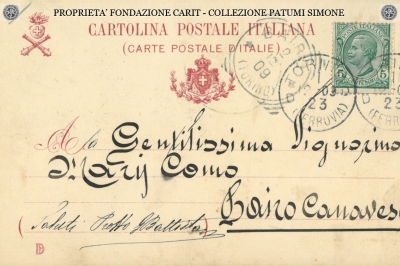 PROPRIETA' FONDAZIONE CARIT - COLLEZIONE PATUMI SIMONE
CARTOLINA POSTALE ITALIANA
(CARTE POSTALE D'ITALIE)
(TORINO)
09
23
(FERROVIA)
23
(FERROVIA)
5
5
A/la Gentilissima Signorina
Mary Como
Bairo Canavese
(Saluti Battista)